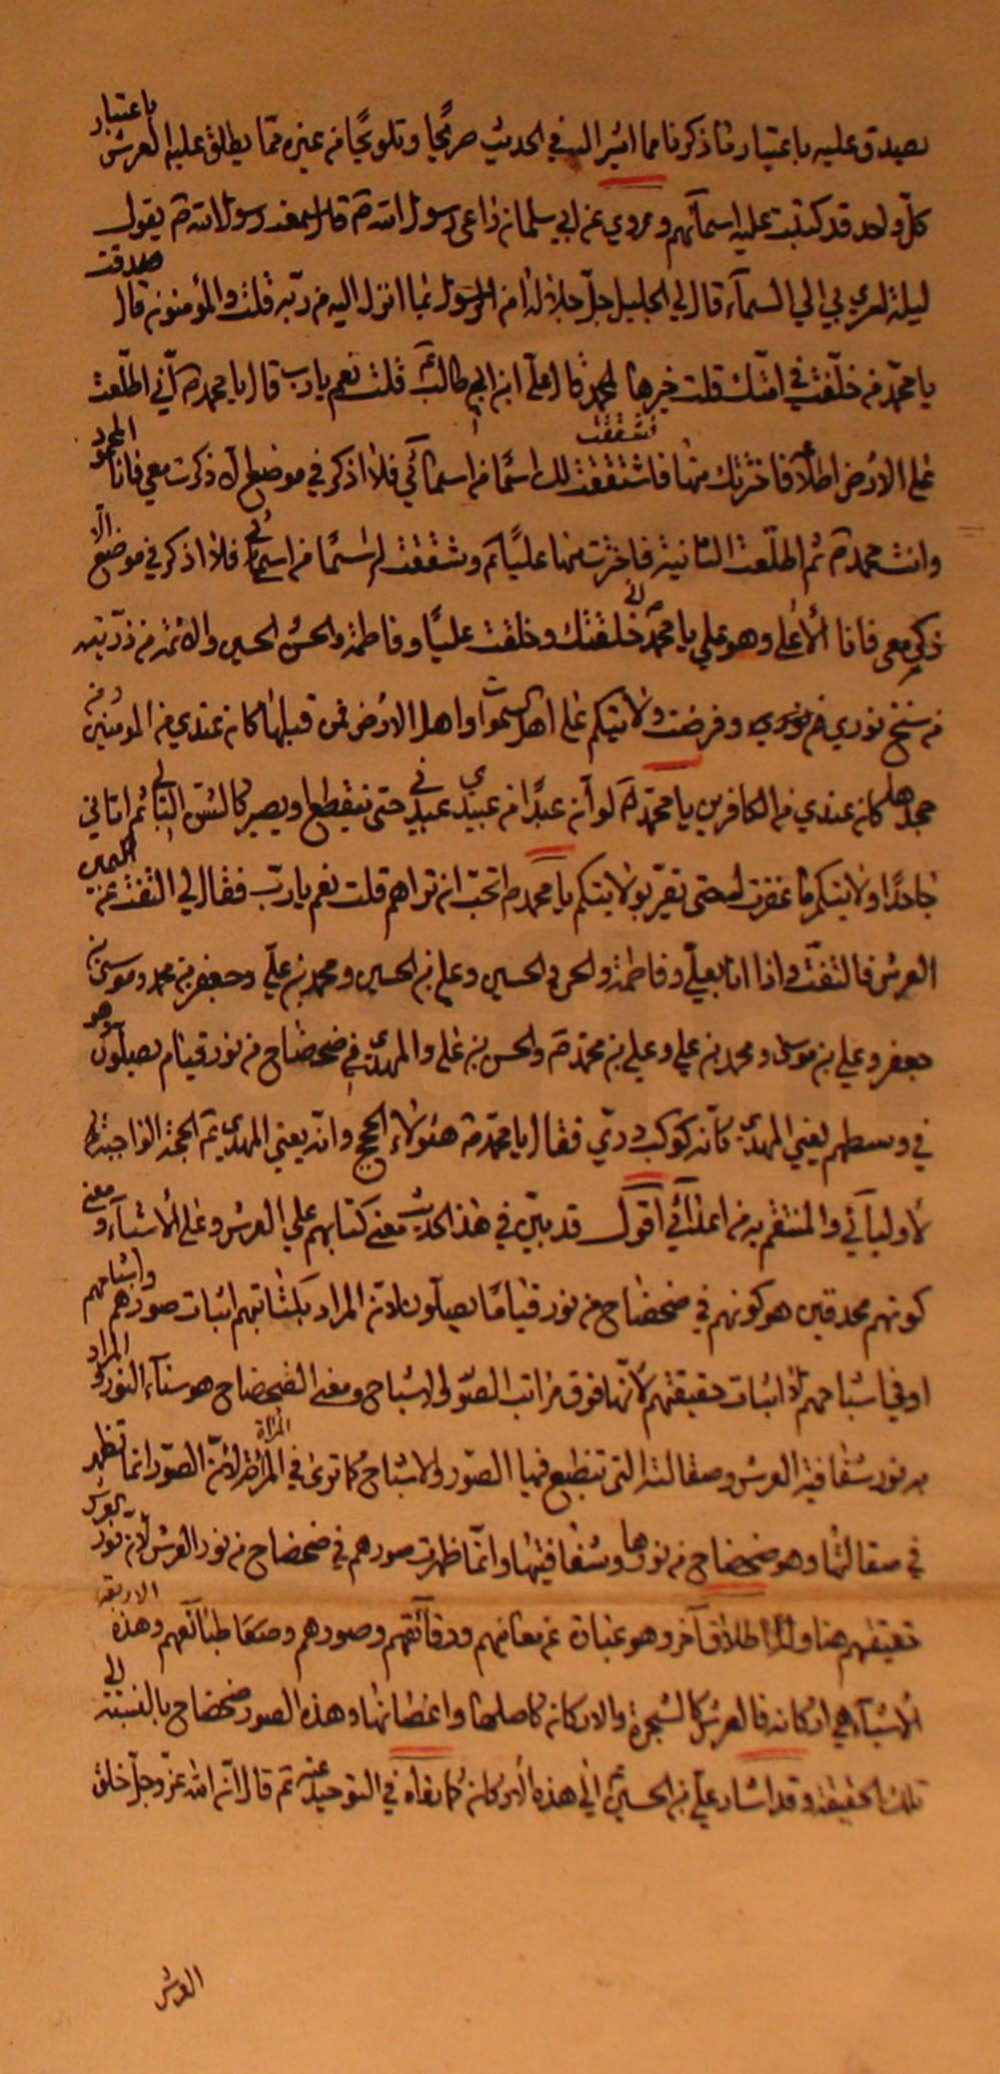 يصدق عليه باعتبار ما ذكرنا مما اشير اليه في الحديث صريحًا وتلويحًا من غيره مما يطلق عليه العرش باعتبار
كل واحد قد كتبت عليه اسمائهم وروي عن ابي سلمان راعي رسول الله ص قال سمعت رسول الله ص يقول
ليلة اسري بي الي السمآء قال لي الجليل جل جلاله امن الرسول بما انزل اليه من ربه قلت والمؤمنون قال صدقت
يا محمد من خلفت في امتك قلت خيرها محمد قال علي ابن ابي طالب قلت نعم يا رب قال يا محمد ص اني اطلعت
على الارض اطلاعًا فاخترتك منها فاشتققت لك اسمًا من اسمائي فلا اذكر في موضع الا ذكرت معي فانا المحمود
وانت محمد ص ثم اطلعت الثانية فاخترت منها عليًا ع وشققت له اسمًا من اسمائي فلا اذكر في موضع الا
ذكر معي فانا الأعلى وهو علي يا محمد اني خلقتك وخلقت عليًا وفاطمة والحسن والحسين والائمة من ذريته
من سنخ نوري من نوري وفرضت ولايتكم على اهل السموات واهل الارض فمن قبلها كان عندي من المومنين ومن
جحدها كان عندي من الكافرين يا محمد ص لو أن عبدًا من عبيدي عبدني حتى ينقطع او يصير كالشن البالي ثم اتاني
جاحدًا ولايتكم ما غفرت له حتى يقر بولايتكم يا محمد ص اتحب ان تراهم قلت نعم يا رب فقال لي التفت عن يمين
العرش فالتفت واذا انا بعلي وفاطمة والحسن والحسين وعلي بن الحسين ومحمد بن علي وجعفر بن محمد وموسى بن
جعفر وعلي بن موسى ومحمد بن علي وعلي بن محمد والحسن بن علي والمهدي في ضحضاح من نور قيام يصلون وهو
في وسطهم يعني المهدي كأنه كوكب دري فقال يا محمد ص هئولاء الحجج وانه يعني المهدي الحجة الواجبة
لأوليآئي والمنتقم به من اعدآئي اقول قد بين في هذا الحديث معنى كتابهم علي العرش وعلى الأشيآء ومعنى
كونهم محدقين هو كونهم في ضحضاح من نور قيامًا يصلون لان المراد بكتابتهم اثبات صورهم واشباحهم
او في اشباحهم لا اثبات حقيقتهم لأنها فوق مراتب الصور والاشباح ومعنى الضحضاح هو سنآء النور والمراد
به نور شفافية العرش وصقالته التي تنطبع فيها الصور والاشباح كما ترى في المرآة لأن الصور انما تظهر
في صقالتها وهو ضحضاح من نورها وشفافيتها وانما ظهرت صورهم في ضحضاح من نور العرش لأن نور العرش
حقيقتهم هنا وله اطلاق آخر وهو عبارة عن معانيهم ورقائقهم وصورهم وطبائعهم وهذه الاربعة
الأشيآء هي اركانه فالعرش كالشجرة والاركان كاصلها واغصانها وهذه الصور ضحضاح بالنسبة الى
تلك الحقيقة وقد اشار علي بن الحسين الي هذه الأركان كما رواه في التوحيد عنه ثم قال ان الله عز وجل خلق
العرش